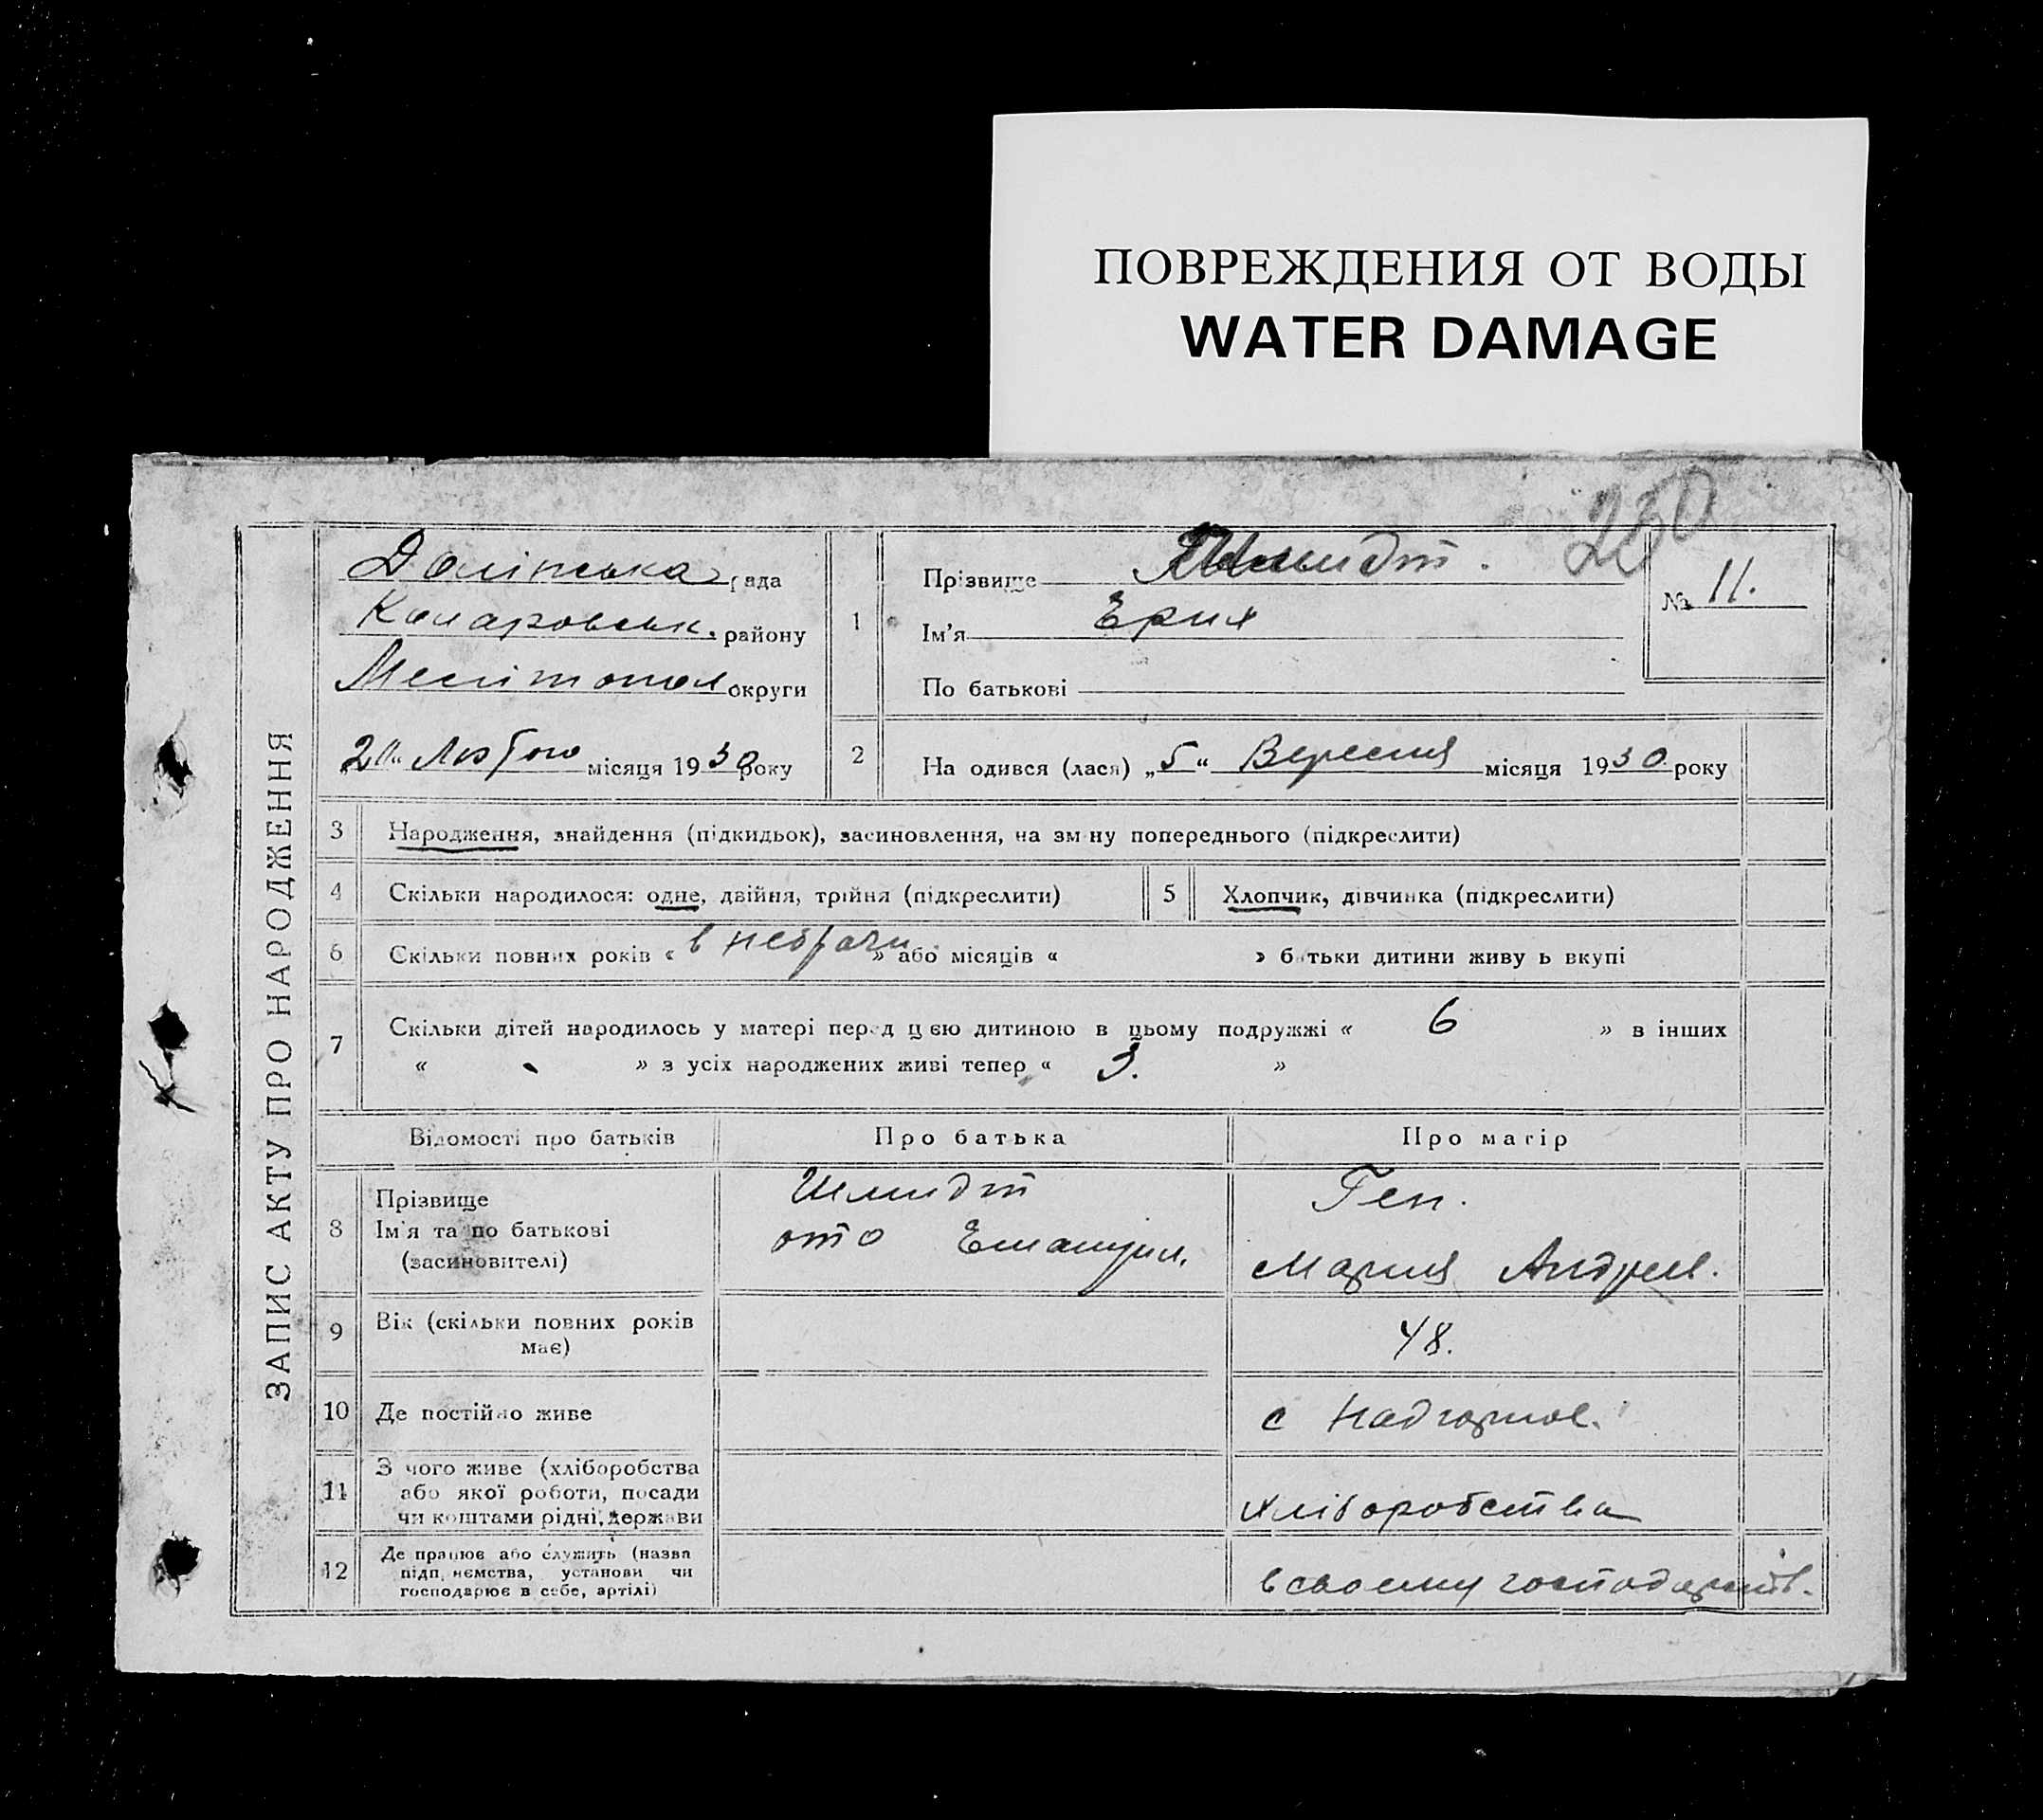 ПОВРЕЖДЕНИЯ ОТ ВОДЫ
WATER DAMAGE
230
ЗАПИС АКТУ ПРО НАРОДЖЕННЯ
Долінська рада
району
Мелітопол округи
2 Лютого місяця 1930 року
1
Прізвище Шмидт.
Ім'я Ерих
По батькові
№ 11.
2
На одився (лася) „5“ Вересня місяця 1930 року
3 Народження, знайдення (підкидьок), засиновлення, на зм ну попереднього (підкреслити)
4 Скільки народилося: одне, двійня, трійня (підкреслити)
5 Хлопчик, дівчинка (підкреслити)
6 Скільки повних років « в небрачи » або місяців « » батьки дитини живу ь вкупі
7 Скільки дітей народилось у матері перед цією дитиною в цьому подружжі « 6 » в інших
« » з усіх народжених живі тепер « 3. »
Відомості про батьків Про батька Про матір
8 Прізвище
Ім'я та по батькові
(засиновителі)
Шмидт
ото Емануил.
Геп.
Мария Андрев.
9 Вік (скільки повних років
має)
48.
10 Де постійно живе
с
11 З чого живе (хліборобства
або якої роботи, посади
чи коштами рідні, держави
хліборобства
12 Де працює або служить (назва
підп, иємства, установи чи
господарює в себе, артілі)
в своему господарств.